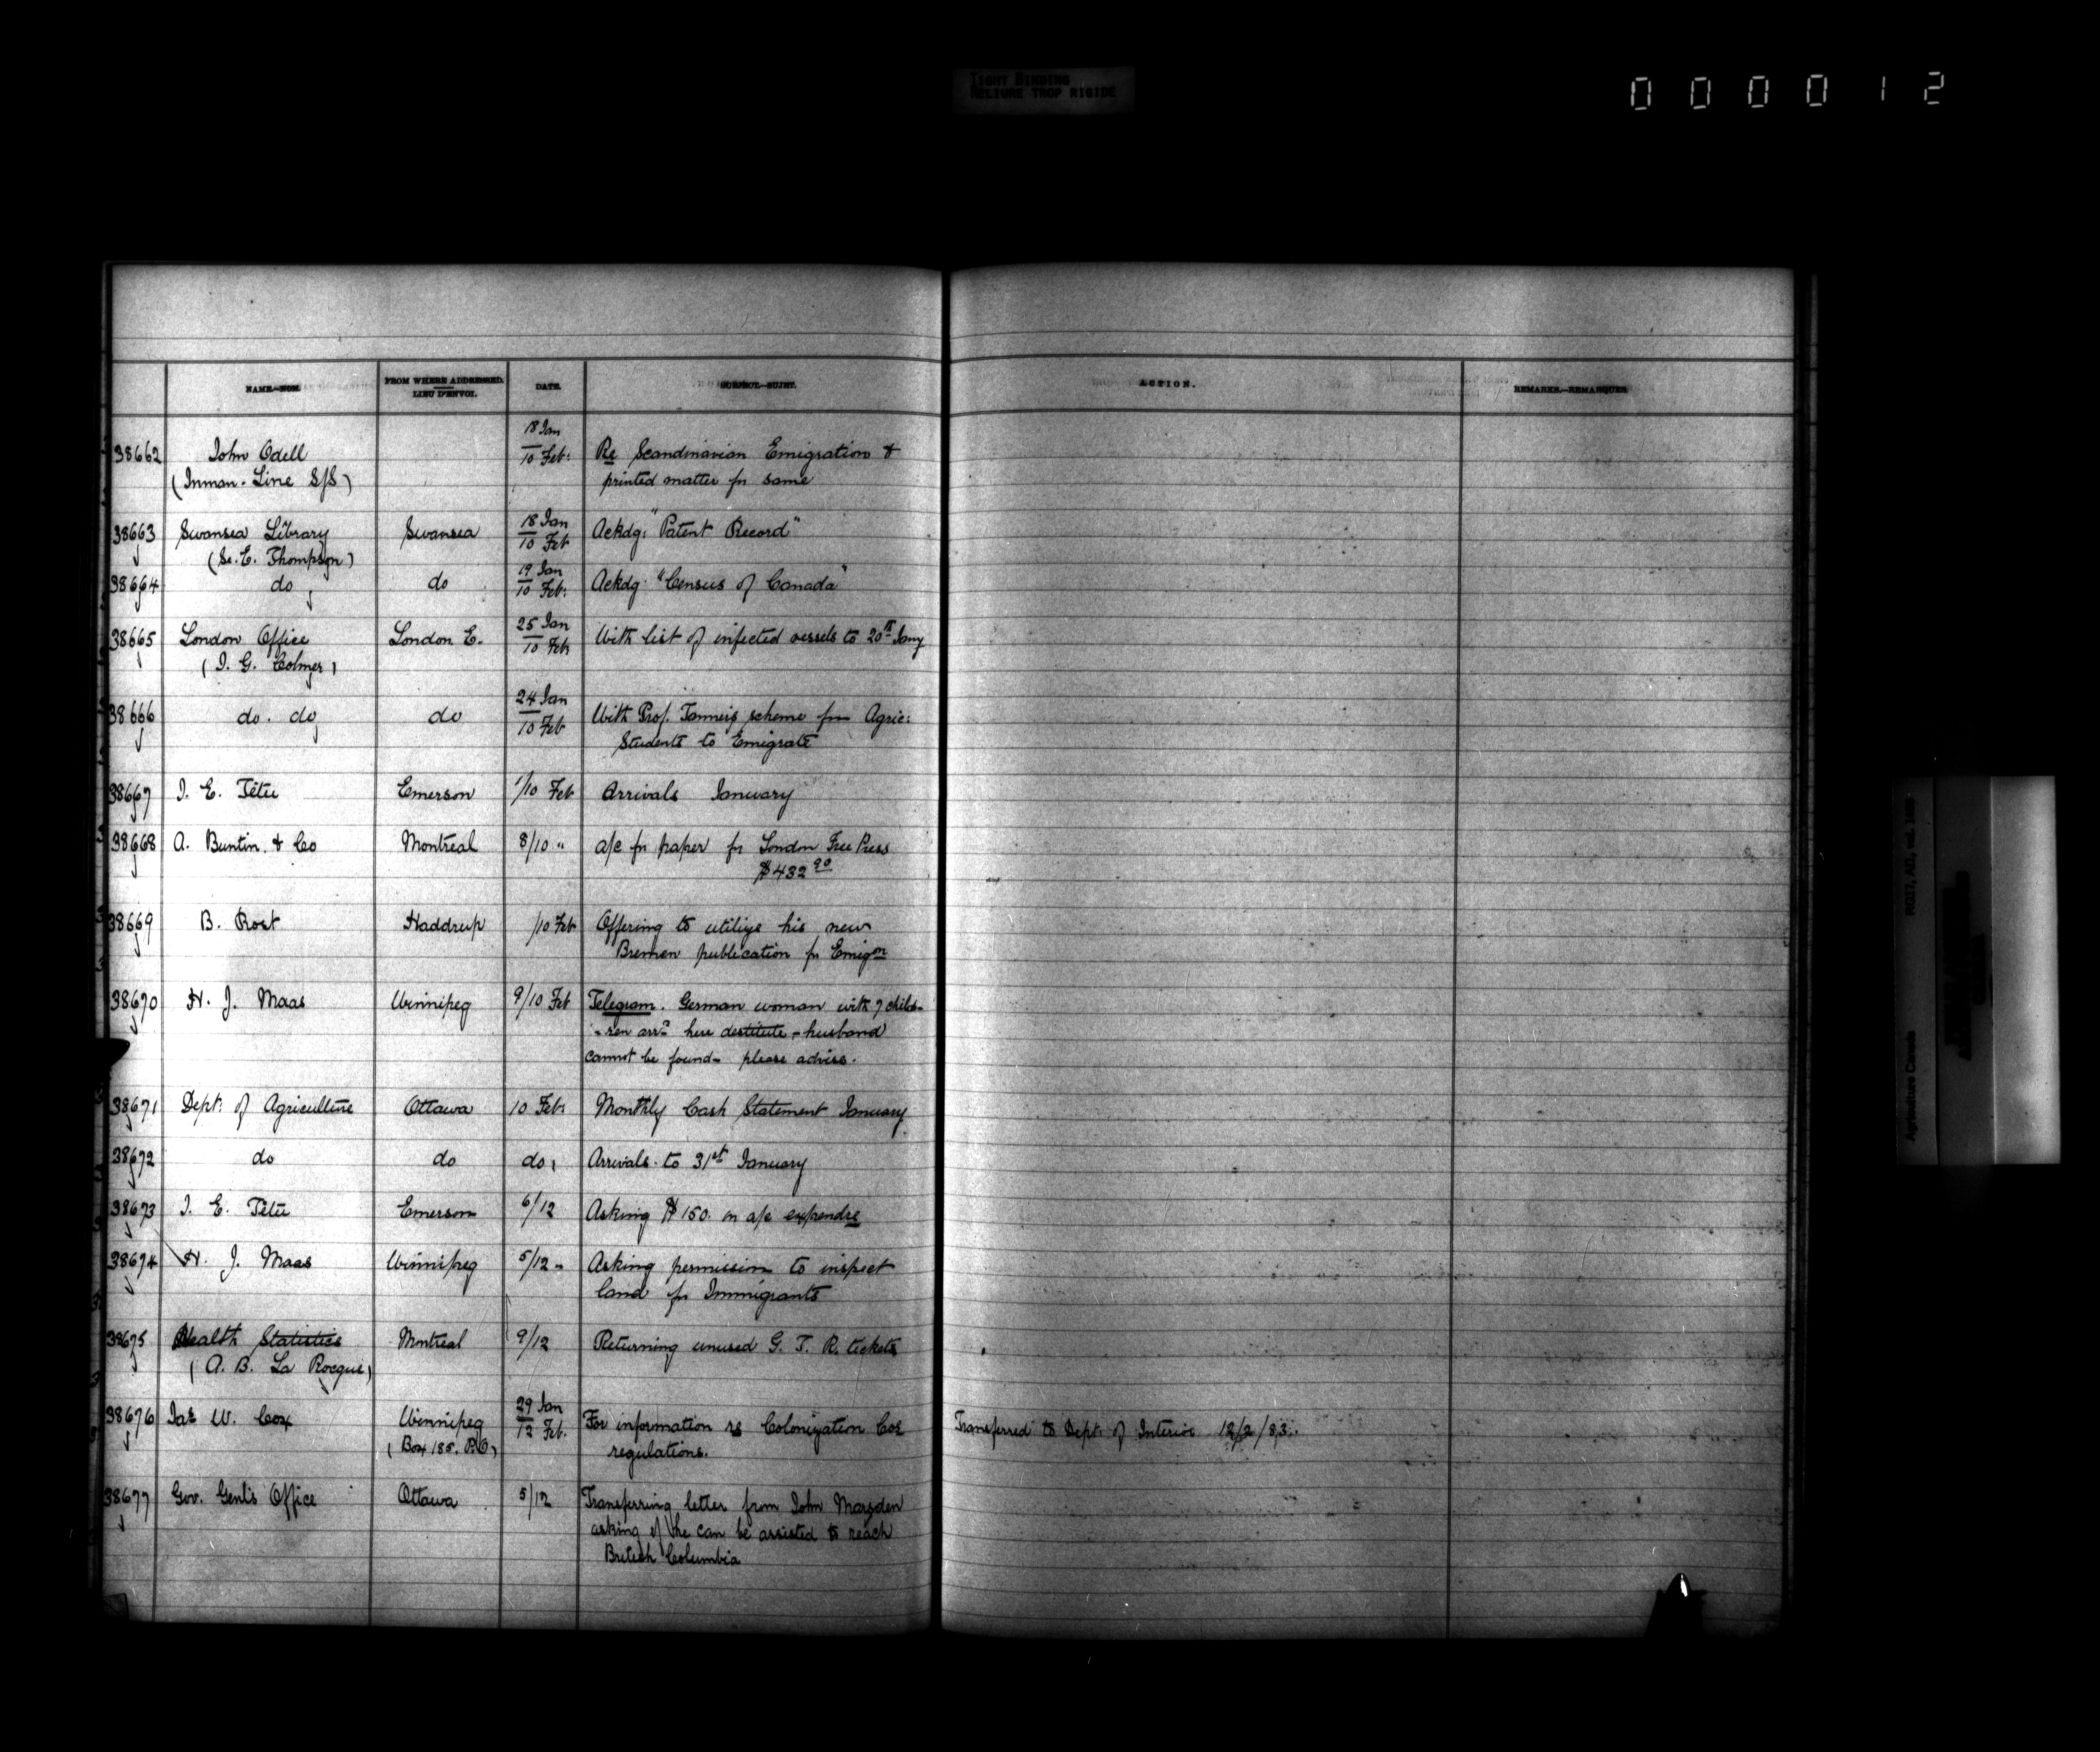 TIGHT BINDING
RELIURE TROP RIGIDE
000012
NAME.—NOM.
FROM WHERE ADDRESSED.
LIEU D'ENVOI.
DATE.
SUBJECT.—SUJET.
ACTION.
REMARKS.—REMARQUES.
18 Jan
38662 John Odell 10 Feb: Re Scandinavian Emigration &
(Inman-Line S/S) printed matter for same
38663 Swansea Library Swansea 18 Jan
10 Feb Ackdg: "Patent Record"
Thompson)
38664 do do 19 Jan
10 Feb: Ackdg: "Census of Canada"
38665 London Office London E. 25 Jan
10 Feb With list of infected vessels to 20th Jany
(J. G. Colmer)
38666 do. do do 24 Jan
10 Feb With Prof. Tanner's scheme for Agric:
Students to Emigrate
38667 J. E. Têtu Emerson 1/10 Feb Arrivals January
38668 A. Buntin & Co Montreal 8/10 " a/c for paper for London Free Press
$432 90
38669 B. Rost Haddrup /10 Feb Offering to utilize his new
Bremen publication for Emign
38670 H. J. Maas Winnipeg 9/10 Feb Telegram. German woman with 7 child-
-ren arrd here destitute - husband
cannot be found - please advise.
38671 Dept: of Agriculture Ottawa 10 Feb: Monthly Cash Statement January
38672 do do do: Arrivals to 31st January
38673 J. E. Têtu Emerson 6/12 Asking $150. on a/c expendre
38674 H. J. Maas Winnipeg 5/12 " Asking permission to inspect
land for Immigrants
38675 Health Statistics Montreal 9/12 Returning unused G. T. R. tickets
(A. B. La Rocque)
38676 Jas W. Cox Winnipeg 29 Jan
12 Feb. For information re Colonization Cos Transferred to Dept: of Interior 12/2/83.
(Box 185. P.O.) regulations.
38677 Gov. Genl's Office Ottawa 5/12 Transferring letter from John Marsden
asking if he can be assisted to reach
British Columbia
Agriculture Canada RG17, AII, vol.